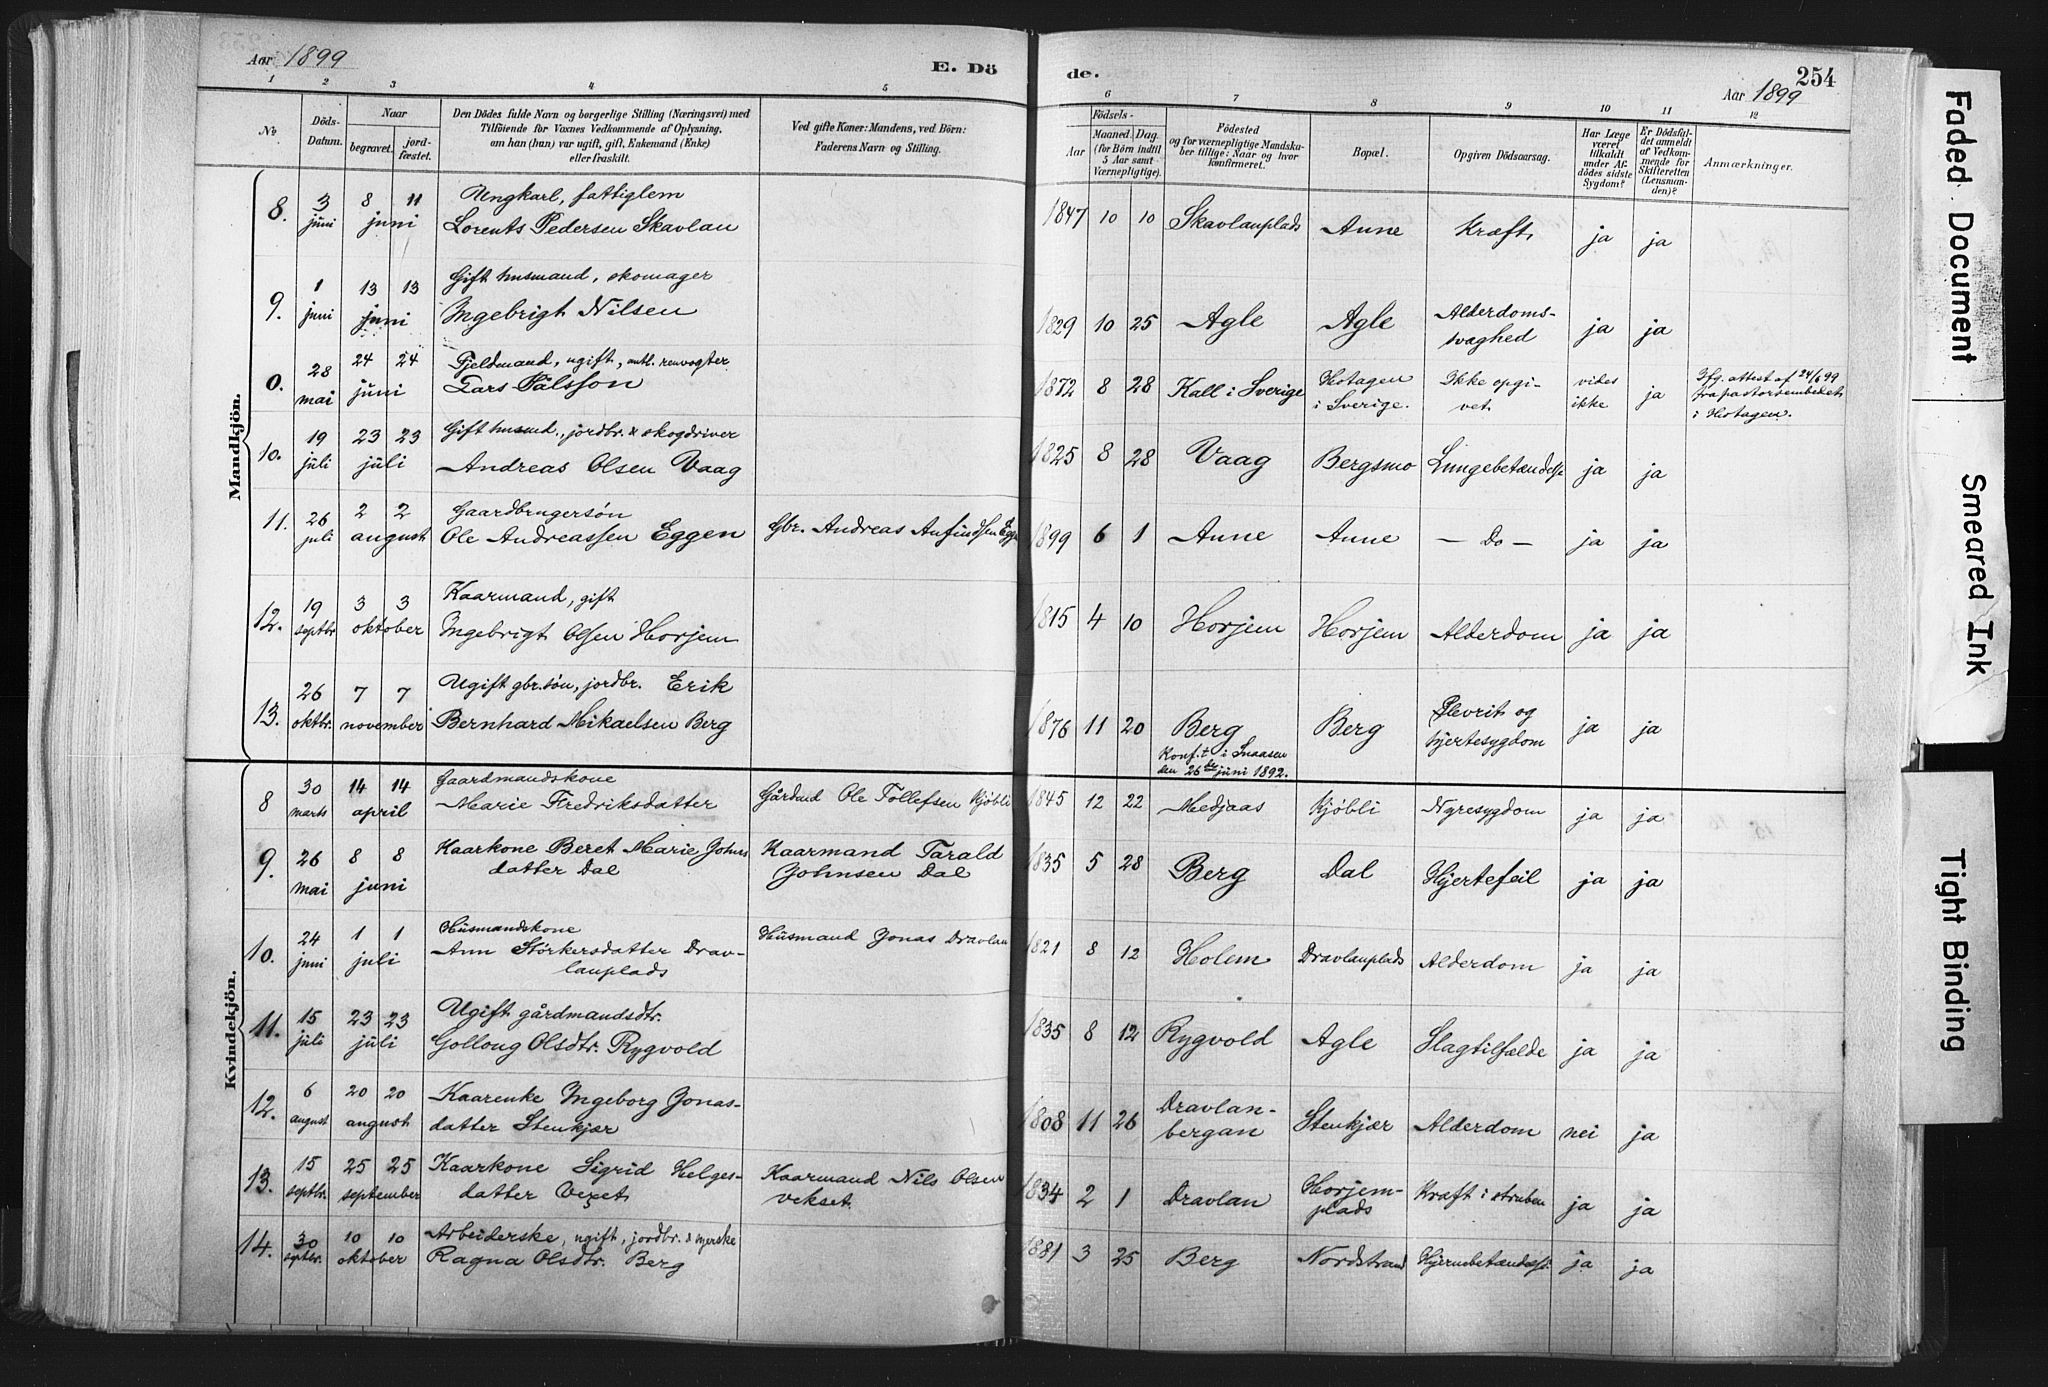 Aar 1899
E. Dö
de.
254
Aar 1899
1 2 3 4 5 6 7 8 9 10 11 12
No
Döds-
Datum.
Naar
begravet.
jord-
fæstet.
Den Dödes fulde Navn og borgerlige Stilling (Næringsvei) med
Tilföiende for Voxnes Vedkommende af Oplysning,
om han (hun) var ugift, gift, Enkemand (Enke)
eller fraskilt.
Ved gifte Koner: Mandens, ved Börn:
Faderens Navn og Stilling.
Födsels-
Aar
Maaned. Dag.
(for Börn indtil
5 Aar samt
Værnepligtige).
Födested
og for værnepligtige Mandska-
ber tillige: Naar og hvor
konfirmeret.
Bopæl.
Opgiven Dödsaarsag.
Har Læge
været
tilkaldt
under Af-
dödes sidste
Sygdom?
Er Dödsfal-
det anmeldt
af Vedkom-
mende for
Skifteretten
(Lensman-
den)?
Anmærkninger.
Mandkjön.
8. 3 juni 8 11 juni Ungkarl, fattiglem
Lorents Pedersen Skavlan 1847 10 10 Skavlanplads Aune Kræft ja ja
9. 1 juni 13 13 juni Gift husmand, skomager
Ingebrigt Nilsen 1829 10 25 Agle Agle Alderdoms-
svaghed ja ja
0. 28 mai 24 24 juni Fjeldmand, ugift, antl. renvogter
Lars Pålsson 1872 8 28 Kall i Sverige Hotagen
i Sverige. Ikke opgi-
vet vides
ikke ja Ifg. attest af 24/6 99
fra pastorsembedet
i Hotagen.
10. 19 juli 23 23 juli Gift husmd., jordbr. & skogdriver
Andreas Olsen Vaag 1825 8 28 Vaag Bergsmo Lungebetændelse ja ja
11. 26 juli 2 2 august Gaardbrugersøn
Ole Andreassen Eggen Gbr. Andreas Anfindsen Eggen 1899 6 1 Aune Aune — Do — ja ja
12. 19 septbr. 3 3 oktober Kaarmand, gift
Ingebrigt Olsen Horjem 1815 4 10 Horjem Horjem Alderdom ja ja
13. 26 oktbr. 7 7 november Ugift gbr.søn, jordbr. Erik
Bernhard Mikaelsen Berg 1876 11 20 Berg
Konf.t i Snaasen
den 26de juni 1892. Berg Plevrit og
hjertesygdom ja ja
Kvindekjön.
8 30 marts 14 14 april Gaardmandskone
Marie Fredriksdatter Gårdmd Ole Tollefsen Kjøbli 1845 12 22 Medjaas Kjøbli Nyresygdom ja ja
9. 26 mai 8 8 juni Kaarkone Beret Marie Johns
datter Dal Kaarmand Tarald
Johnsen Dal 1835 5 28 Berg Dal Hjertefeil ja ja
10. 24 juni 1 1 juli Husmandskone
Ann Størkersdatter Drav-
lanplads Husmand Jonas Dravlan 1821 8 12 Holem Dravlanplads Alderdom ja ja
11. 15 juli 23 23 juli Ugift gårdmandsdtr.
Gollong Olsdtr. Rygvold 1835 8 12 Rygvold Agle Slagtilfælde ja ja
12. 6 august 20 20 august Kaarenke Ingeborg Jonas-
datter Stenkjær 1808 11 26 Dravlan-
bergan Stenkjær Alderdom nei ja
13. 15 septbr. 25 25 september Kaarkone Sigrid Helges-
datter Kaarmand Nils Olsen
vekset. 1834 2 1 Dravlan Horjem-
plads Kræft i struben ja ja
14. 30 septbr. 10 10 oktober Arbeiderske, ugift, jordbr. &
Ragna Olsdtr. Berg 1881 3 25 Berg Nordstrand Hjernebetændelse ja ja
Faded Document
Smeared Ink
Tight Binding